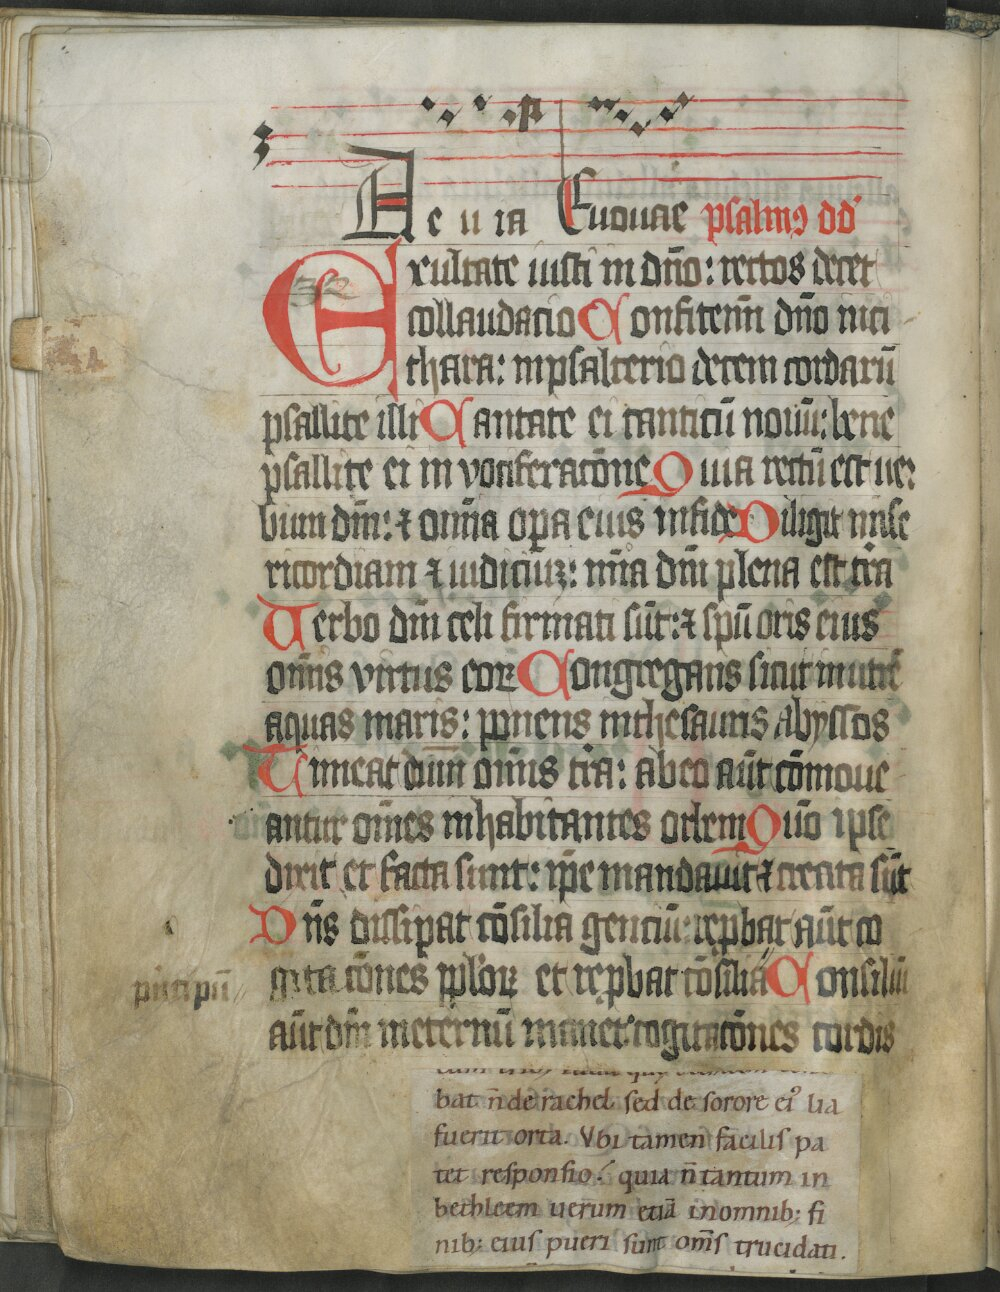 De u ia Euouae psalmꝯ dd̄
32
Exultate iusti in dn̄o: rectos decet
collaudatio Confitem̄ dn̄o in ci
thara: in psalterio decem cordarū
psallite illi Cantate ei canticū nouū: bene
psallite ei in vociferatōne Quia rectū est uer
bum dm̄: ⁊ omīa oꝑa eius in fide Diligit mise
ricordiam ⁊ iudiciuꝫ: mīa dm̄ plena est tr̄a
Uerbo dm̄ celi firmati sūt: ⁊ spū oris eius
om̄is virtus eoꝝ Congregans sicut in utrē
aquas maris: ponens in thesauris abyssos
Timeat dum̄ om̄is tr̄a: ab eo aūt cōmoue
antur om̄es inhabitantes orbem Qūo ipse
dixit et facta sunt: ip̄e mandauit ⁊ creata sūt
Dn̄s dissipat cōsilia gentiū: reꝓbat aūt co
gitatōnes pplōꝝ et reꝓbat cōsilia Consiliū
pn̄cipū
aūt dm̄ in eternū manet: cogitatōnes cordis
bat n̄ de rachel sed de sorore eiꝰ lia
fuerit orta. Vbi tamen facilis pa
tet responsio. quia n̄ tantum in
bethleem uerum etiā in omnib; fi
nib; eius pueri sunt om̄s trucidati.